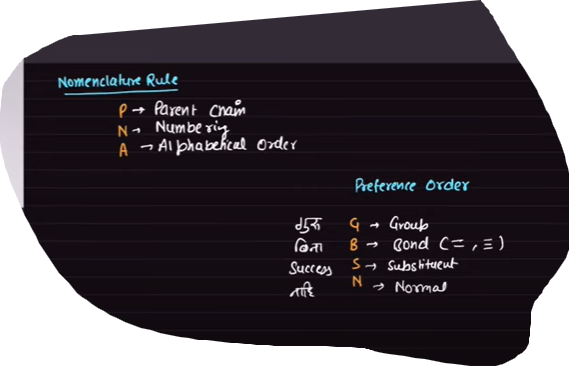 Nomenclature Rule
P → Parent Chain
N → Numbering
A → Alphabetical Order
Preference Order
G → Group
बिना B → Bond (=, ≡)
Success S → Substituent
N → Normal